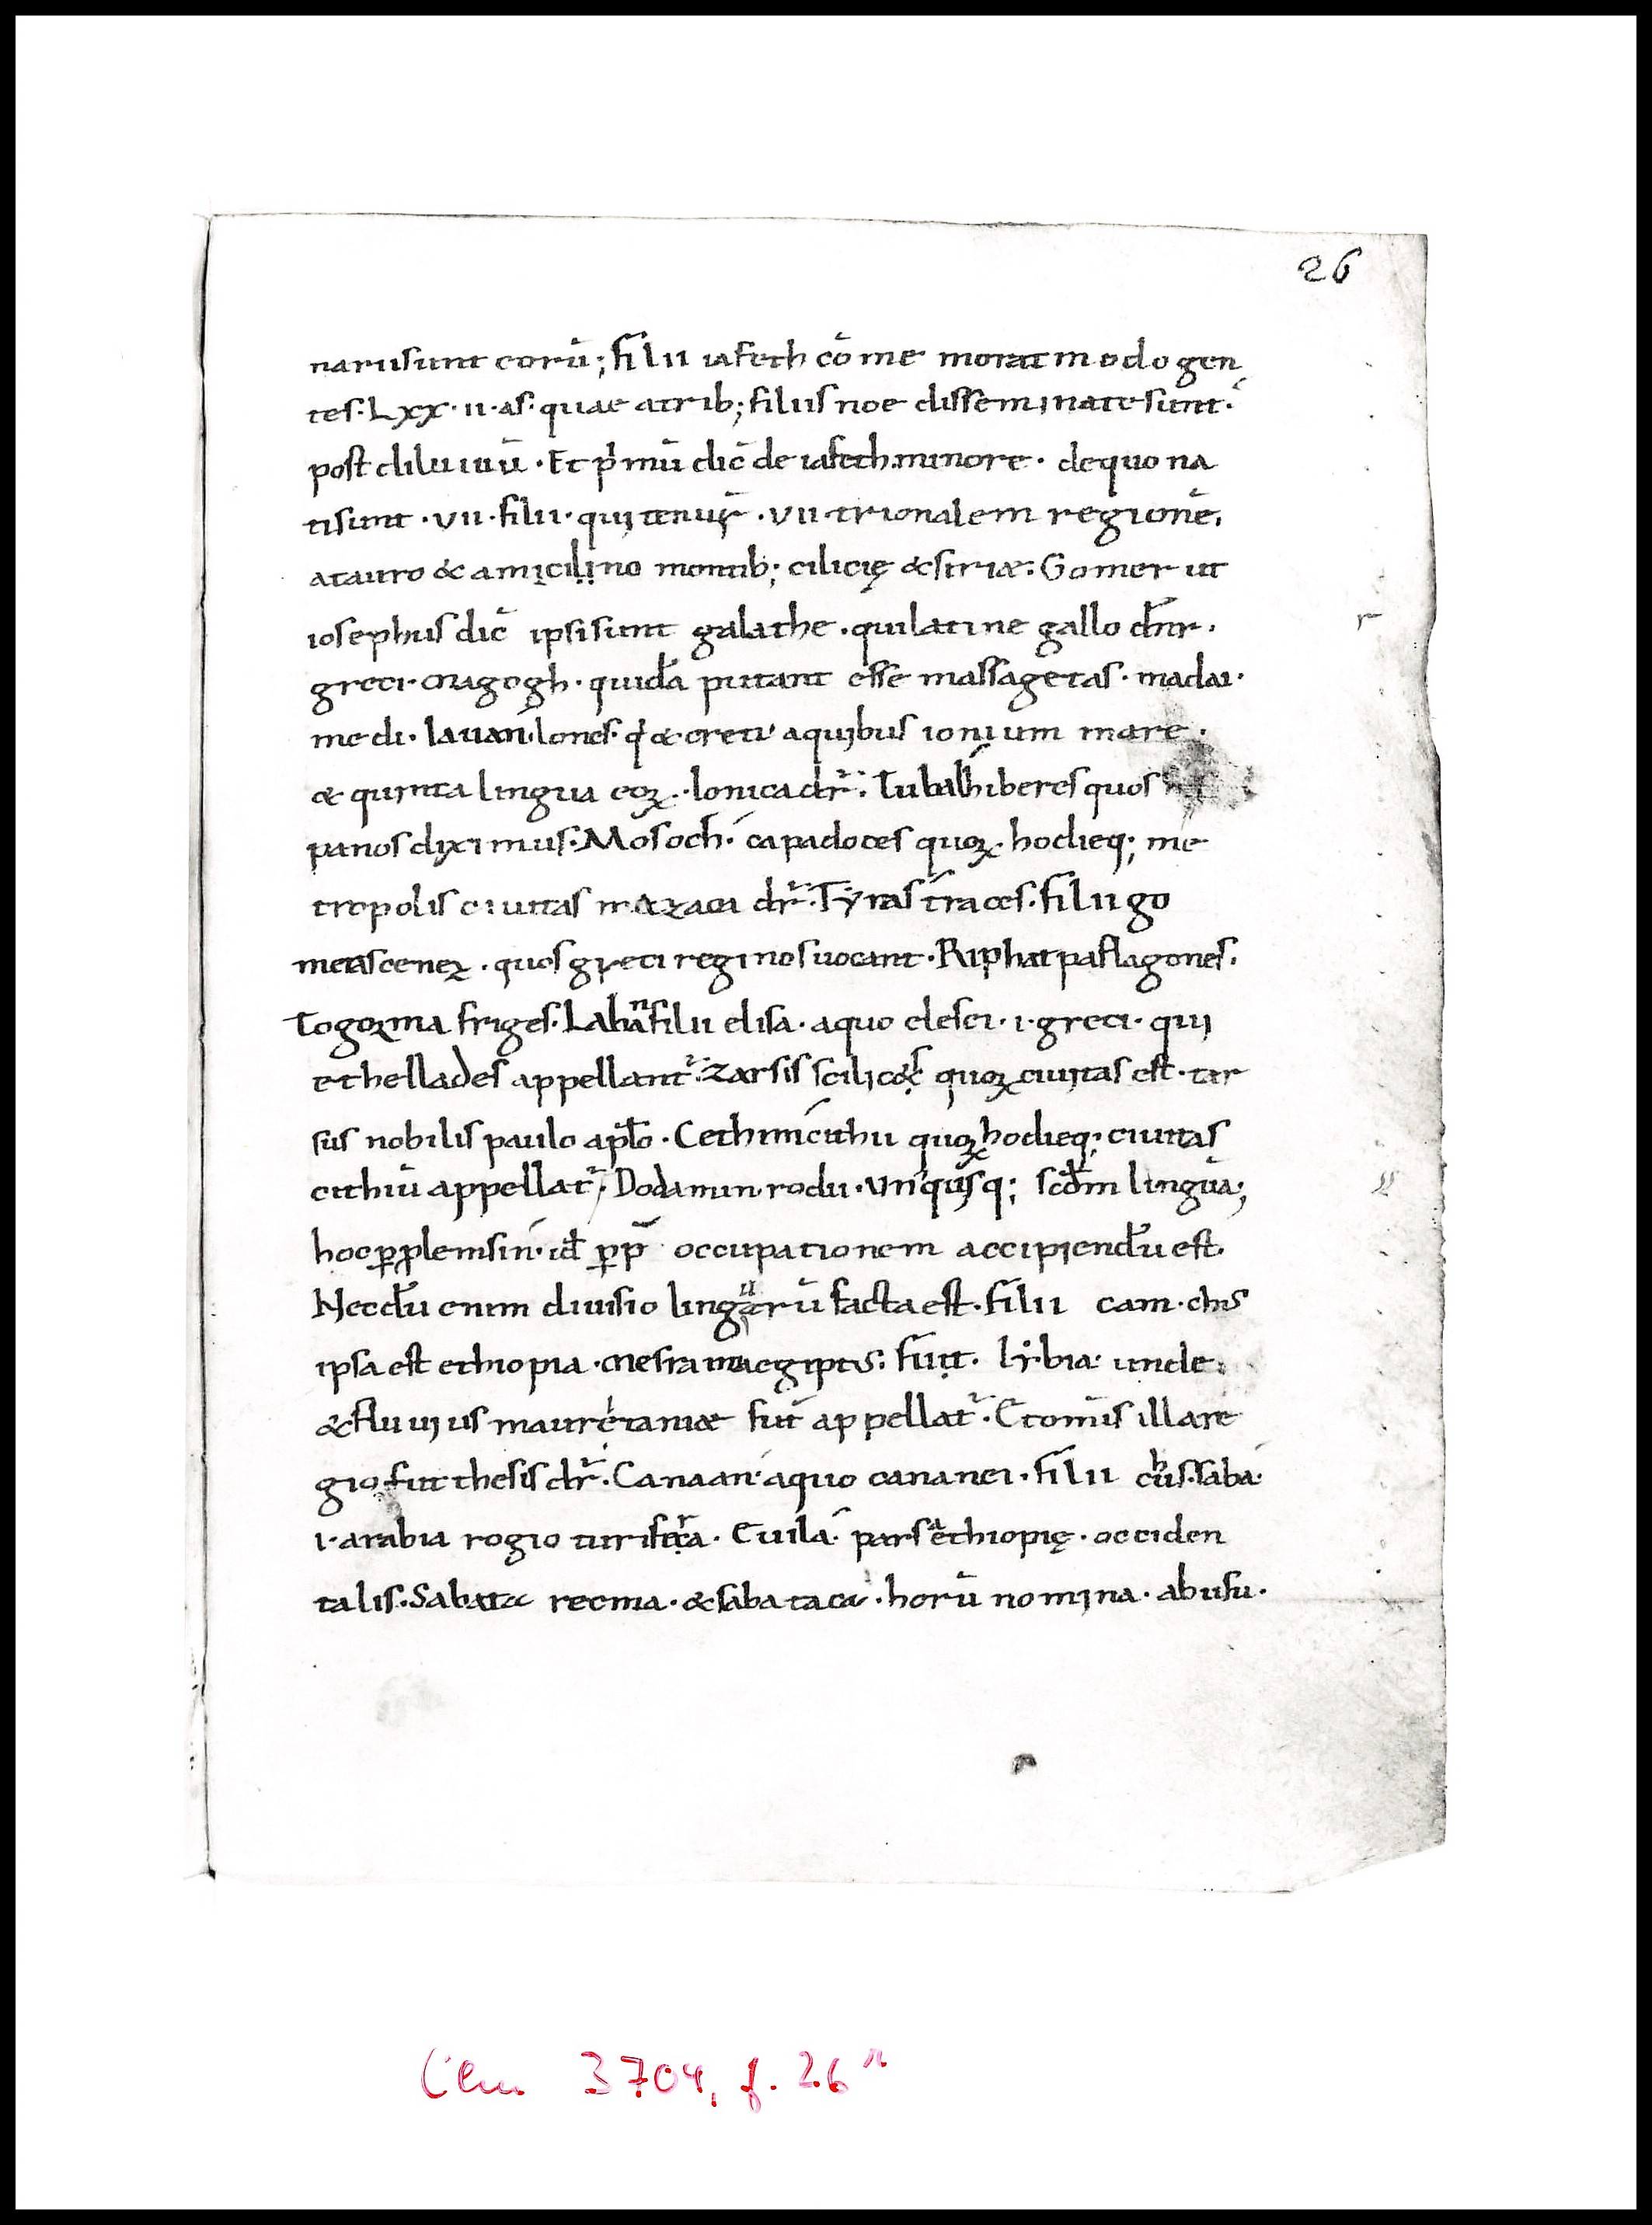 26
narusunt eorū; filii iafeth cōme morat modo gen
tes. Lxx. ii. as. quae atrib; filiis noe disseminate sunt.
post diluuiū. Et p'mū dic̄ de iafeth minore. dequo na
tisunt. vii. filii. qui tenuer̄. vii. trionalem regionē.
atauro & amicilino montib; cilicię & siriæ: Gomer ut
iosephus dic̄ ipsi sunt galathe. qui latine gallo dn̄r.
greci. magogh. quidā putant esse massagetas. madai.
medi. Iauan. Iones. q' & creti aquibus ionium mare.
& quinta lingua eoꝝ. Ionica dr̄. Tubal hiberes quos
panos diximus. Mosoch. capadoces quoꝝ. hodieq; me
tropolis ciuitas mazaca dr̄. Tyras traces. filii go
mer ascenez. quos greci regino suocant. Riphat paflagones.
Togorma friges. Labanfilii elisa. aquo elesei. i. greci. qui
ethellades appellant'. Zarsis scilic& quoꝝ ciuitas est. tar
sus nobilis paulo aplo. Cethim cithii quoꝝ hodieq; ciuitas
cithiū appellat'. Dodamin. rodii. Vn'quisq; scdm linguā;
hoc ꝑꝓlemsin. id ꝑp̄ occupationem accipiendū est.
Necdū enim diuisio linguarū facta est. filii cam. chus
ipsa est ethiopia. mesraim aegiptus: fuit. lybia. unde
& fluuius mauretaniæ fut appellat'. Et omīs illa re
gio fut thesis dr̄. Canaan. aquo cananei. filii chus. saba
i. arabia rogio turifera. Euila. pars aethiopię. occiden
talis. Sabata recma. & sabataca. horū nomina. abusu.
Clm 3704, f. 26r